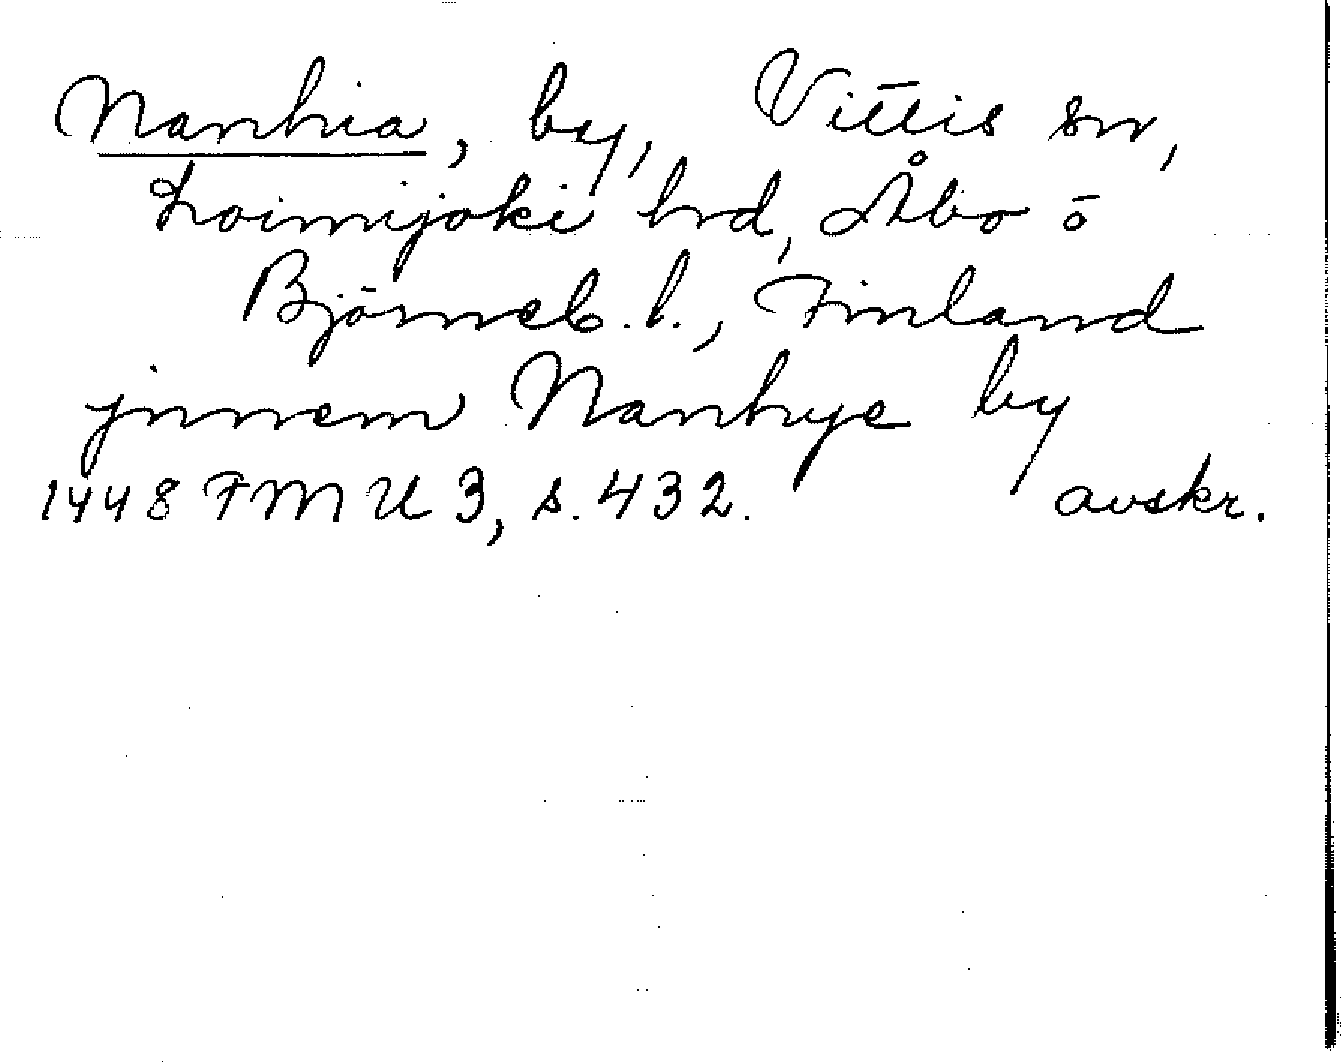 Nanhia, by, Vittis sn,
Loimijoki hrd, Åbo o
Björneb. l., Finland
jnnem Nanhye by
1448 FMU 3, s. 432. avskr.